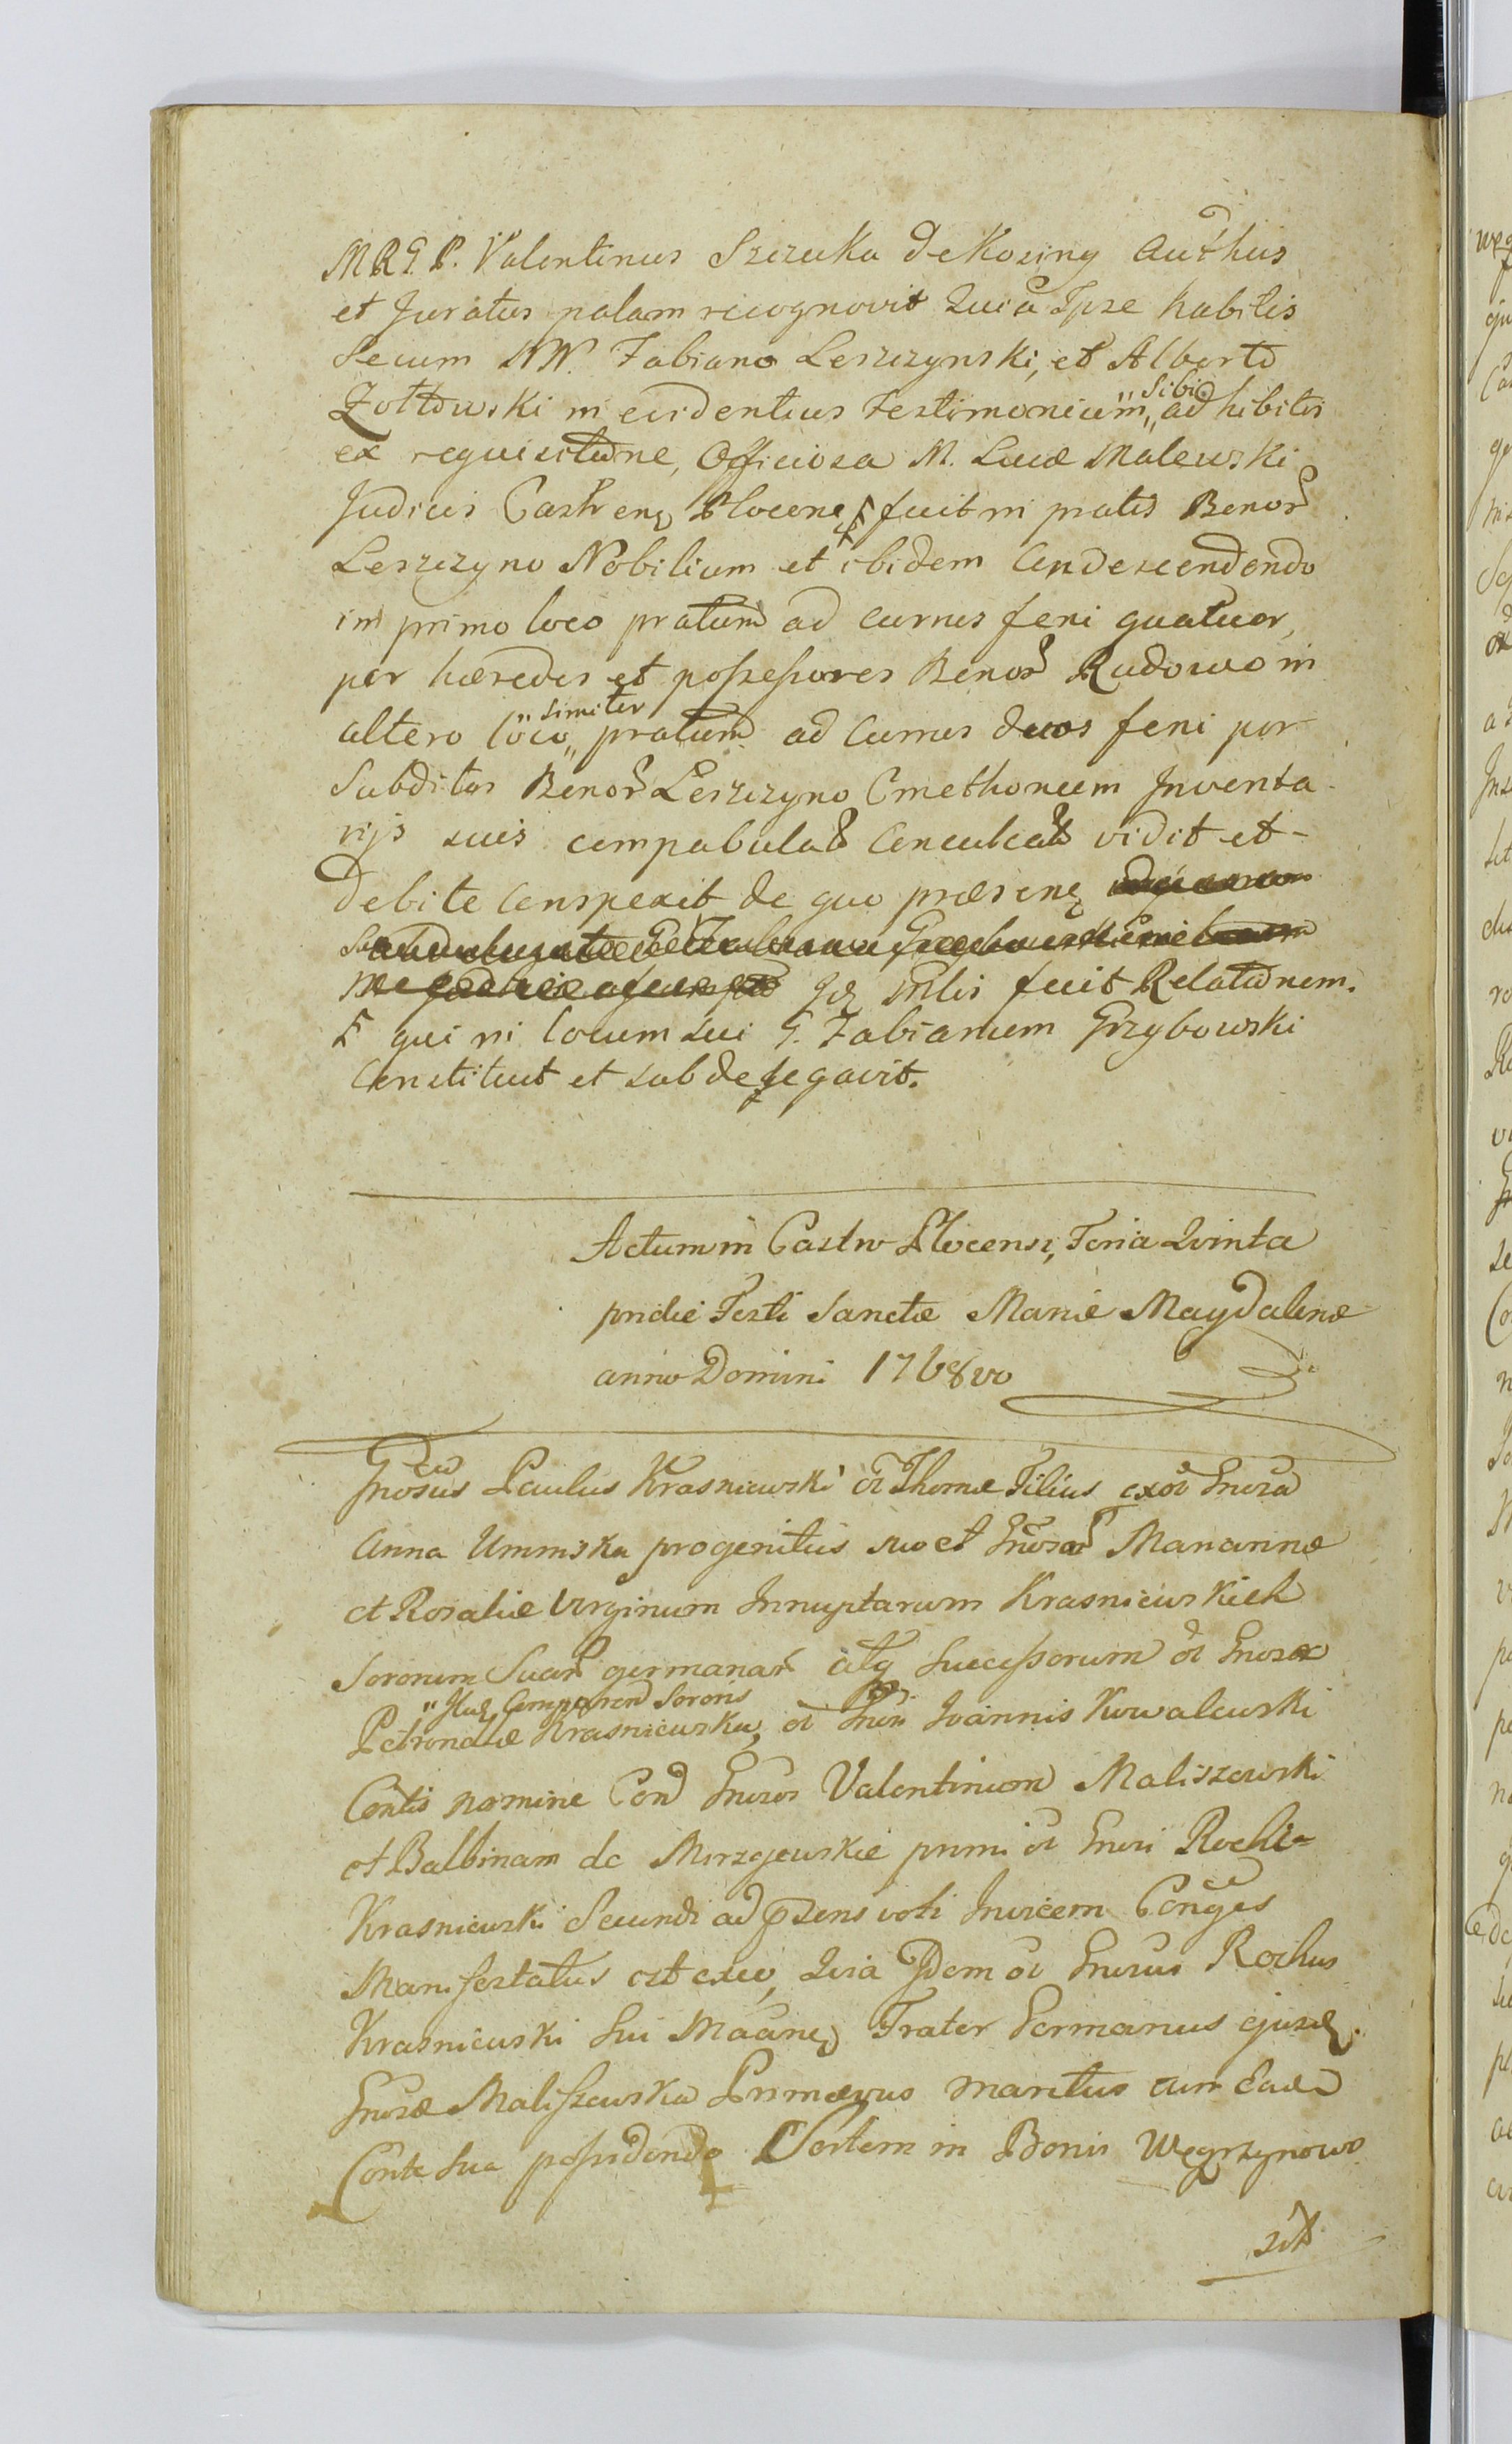 MRGP. Valentinus Szczuka de Koziny Authus
et Juratus palam recognovit Quia Ipse habitis
Secum NN. Fabiano Leszczynski, et Alberto
Zołtowski in evidentius Testimonium "Sibi" adhibitis
ex requisitione, Officiosa M. Lucæ Malewski
Judicis Castren Plocen # fuit in pratis Bonor
Leszczyno Nobilium et ibidem Condescendendo
in primo loco pratum ad currus feni quatuor,
per hæredes et possessores Bonor Rudowo in
altero loco "similiter" pratum ad Currus duos feni per
Subditos Bonor Leszczyno Cmethonum Inventa-
rijs suis compabulat Conculcat vidit et-
Debite Conspexit de quo præsens
Jdq Mlis fecit Relationem.
# qui in locum sui G. Fabianum Grzybowski
Constituit et subdelegavit.
Actum in Castro Plocensi, Feria Quinta
pridie Festi Sanctæ Mariæ Magdalenæ
anno Domini 1768vo
Gnosus Paulus Krasniewski ol Thomæ Filius ex ol Gnosa
Anna Uminska progenitus suo et Gnosar Mariannæ
et Rosaliæ Virginum Innuptarum Krasniewskich
Sororum Suar germanar atq Successorum ol Gnosæ
"Itidq Comparen Sororis
Petronellæ Krasniewska, ol Gnosi Joannis Kowalewski
Contis nomine Con Gnosos Valentinum Maliszewski
et Balbinam de Mirzejewskie primi ol Gnosi Rochi
Krasniewski Secundi ad præsens voti Invicem Conges
Manifestatus est eo, Quia Idem ol Gnosus Rochus
Krasniewski sui Maanen Frater Germanus ejusdq
Gnosæ Maliszewska Primævus maritus cum Eadem
Conte Sua possidendo Sortem in Bonis Węgrzynowo